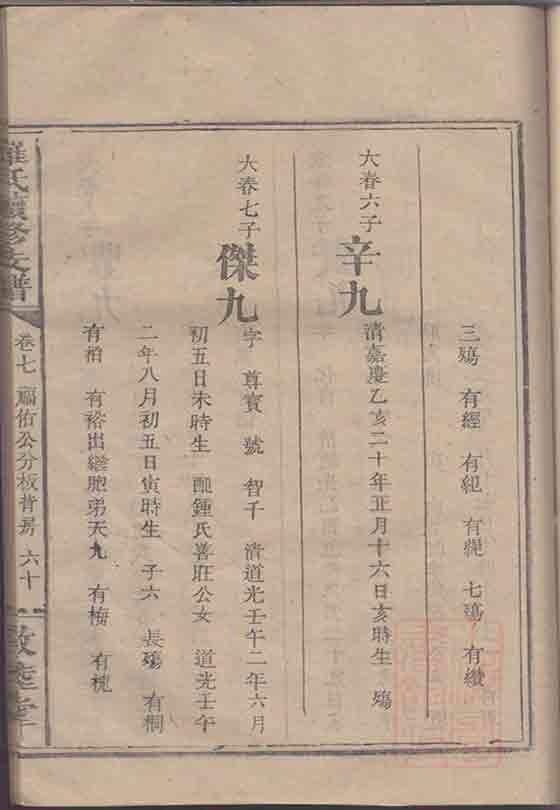 三殤 有經 有紀 有緹 七殤 有纘
大春六子
辛九
清嘉慶乙亥二十年正月十六日亥時生 殤
大春七子
傑九
字 尊賓 號 智千 清道光壬午二年六月
初五日未時生 配鍾氏善旺公女 道光壬午
二年八月初五日寅時生 子六 長殤 有桐
有柏 有裕出繼胞弟天九 有梅 有桃
羅氏續修支譜
卷七 福佑公分板背房 六十
敦睦堂